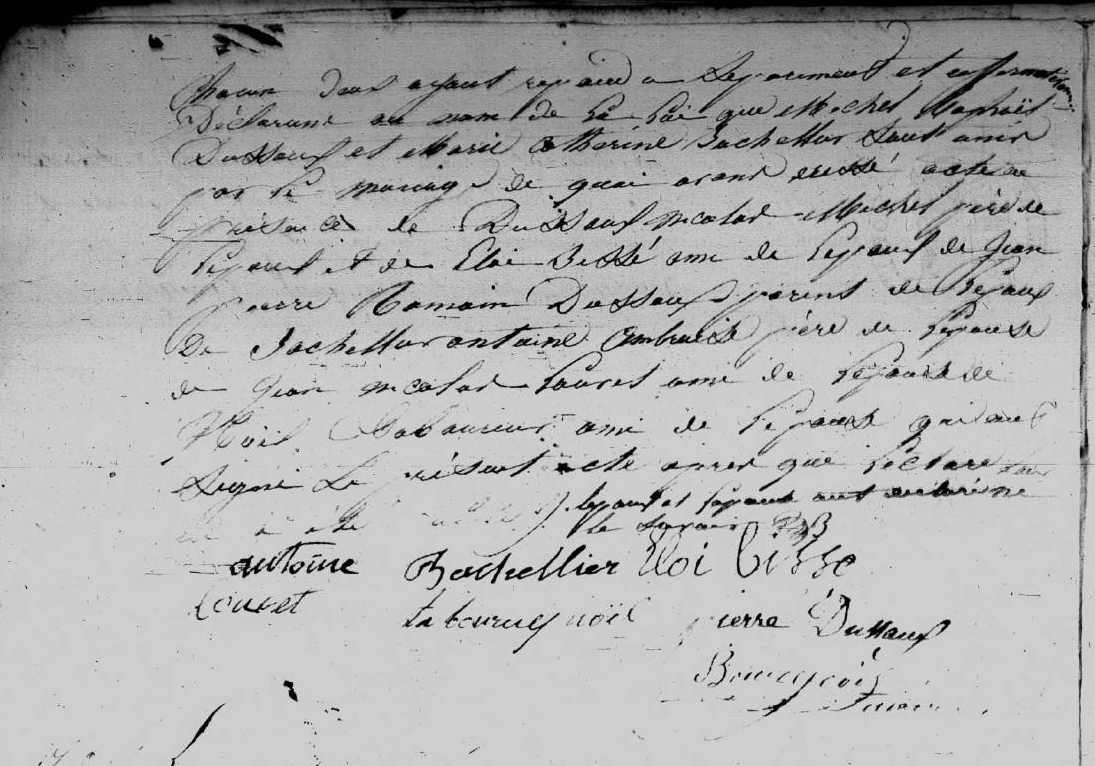 chacun deux ayant repondu Separement et affirmativement
Déclarons au nom de La Loi que Michel Raphaël
Dussaux et Marie Catherine Bachellier sont unis
par le mariage de quoi avons dressé acte en
présence de Dussaux nicolas Michel père de
l'epoux et de Eloi Bissé ami de l'epoux de jean
pierre Romain Dussaux parent de l'Epoux
De Bachellier antoine ambroise père de l'epouse
de jean nicolas Louvet ami de l'epouse de
Noël Laboureur ami de l'epouse qui ont
Signé Le présent acte apres que Lecture
a été l'epoux et l'epouse ont déclaré ne
le savoir
antoine Bachellier Eloi Bisse
Louvet Laboureur noël pierre Dussaux
Bourgeois